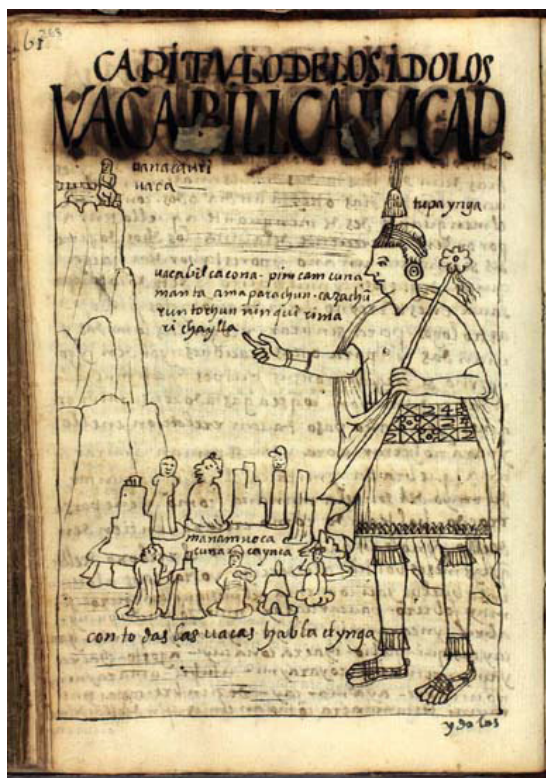 263
CAPITVLODELOSIDOLOS
VACABILLCAIИCAP
uanacauri
uaca
tupa ynga
uacabilcacona - pim cam cuna
manta ama parachun - cazachū
runtochun ninqui rima
ri chaylla
manam noca
cuna cayaca
con todas las uacas habla el ynga
ydolos